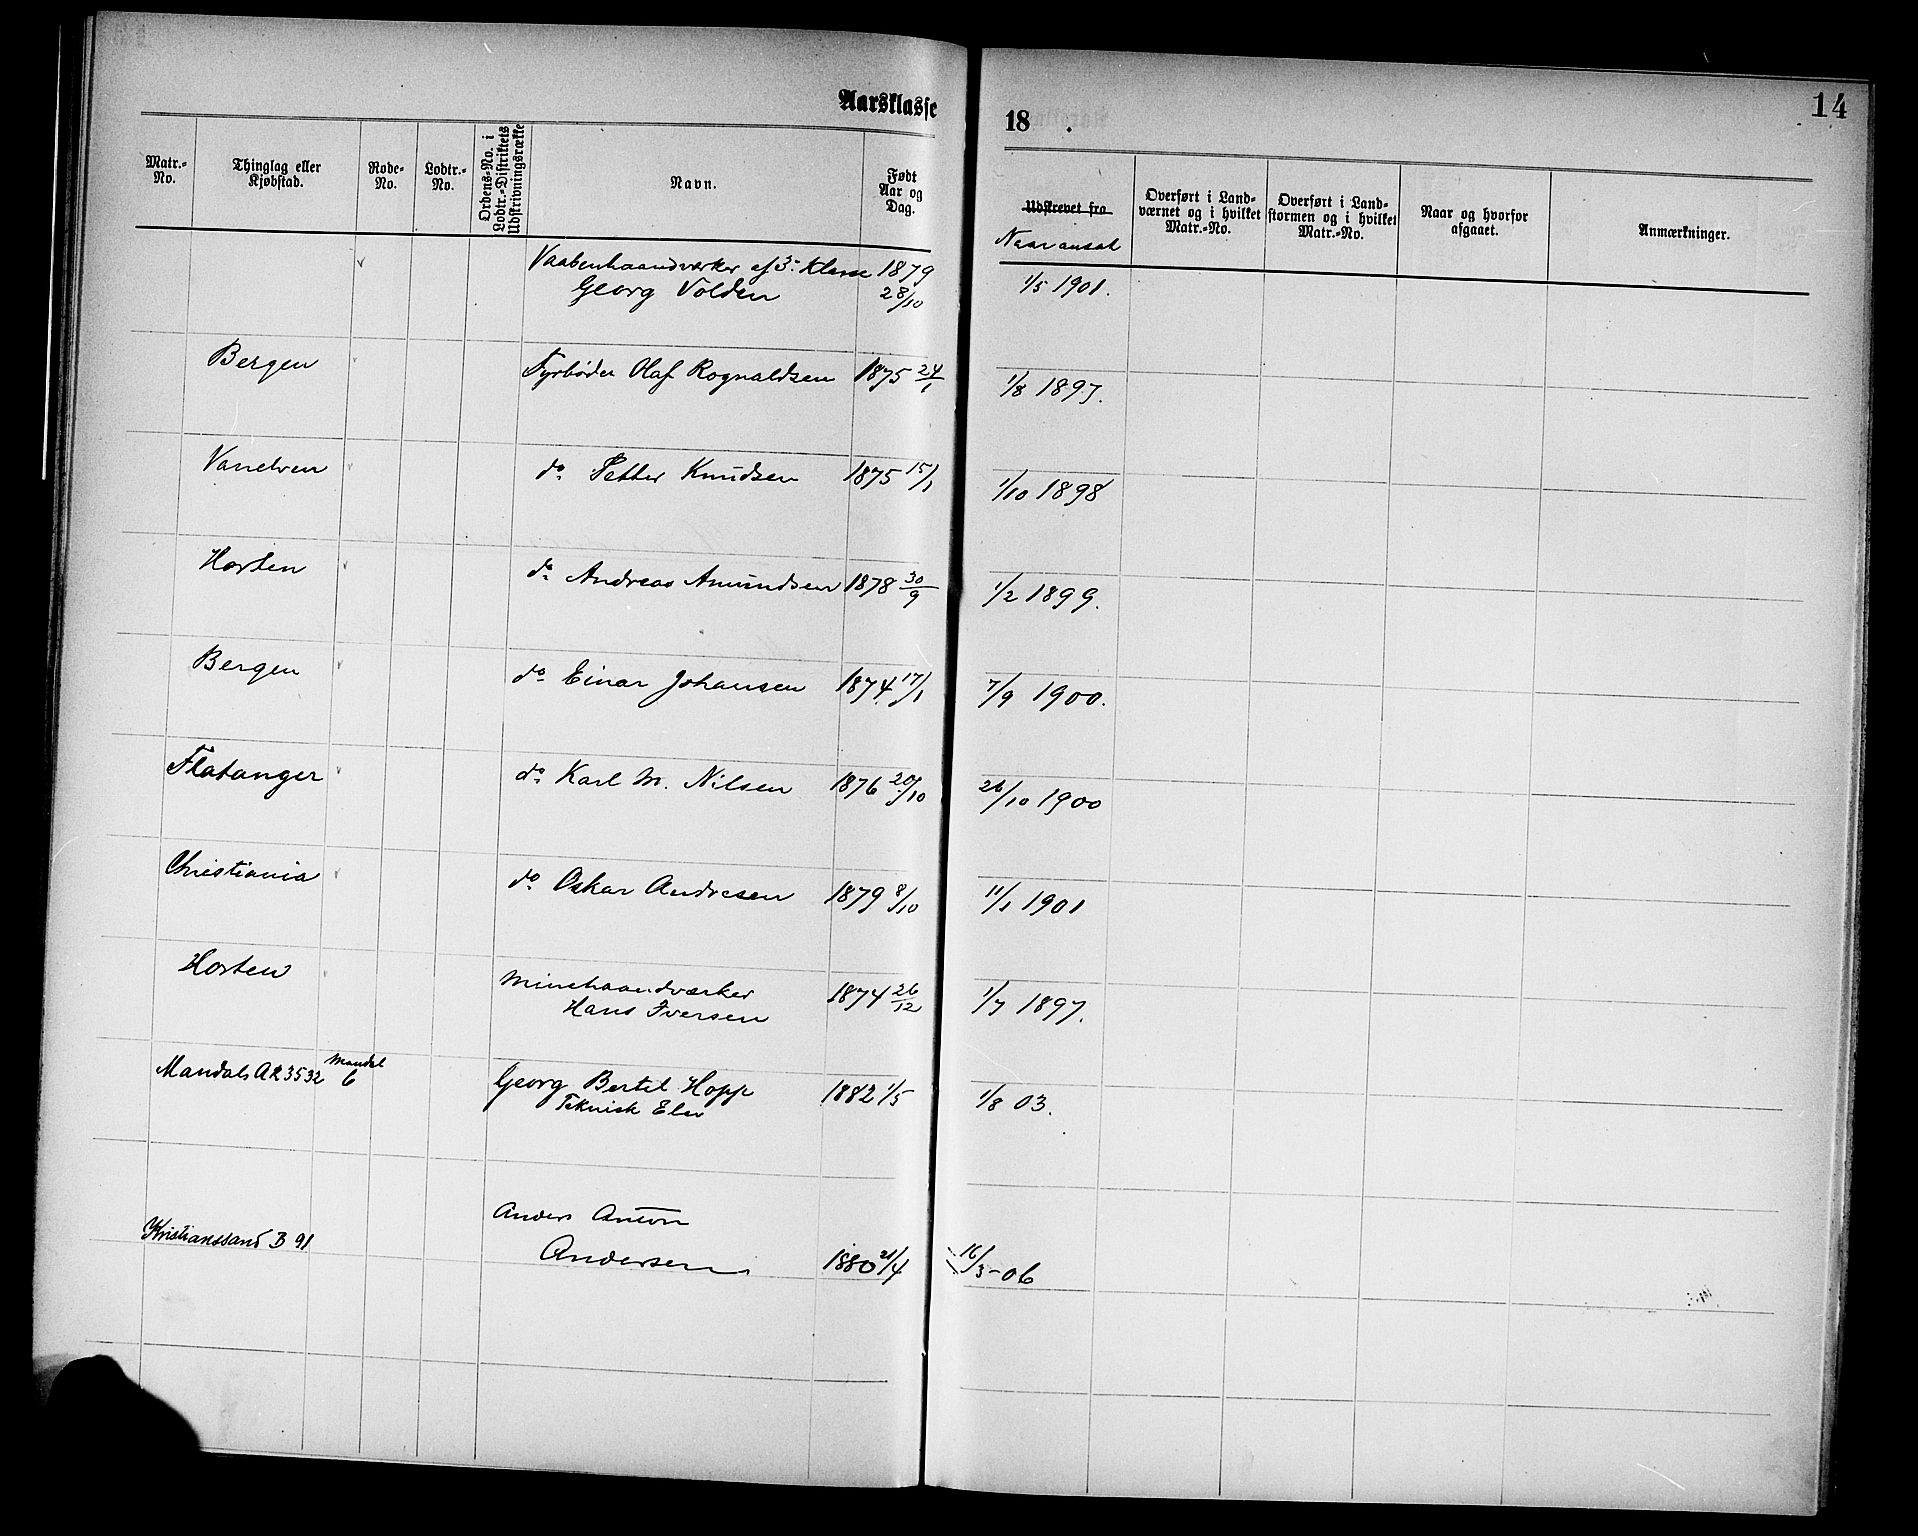 Aarsklasse 18 .
14
Matr.-No.
Thinglag eller Kjøbstad.
Rode-No.
Lodtr.-No.
Ordens-No. i Lodtr.-Distriktets Udskrivningsrække
Navn.
Født Aar og Dag.
Udskrevet fra
Naar ansat
Overført i Landværnet og i hvilket Matr.-No.
Overført i Landstormen og i hvilket Matr.-No.
Naar og hvorfor afgaaet.
Anmærkninger.
Vaabenhaandværker af 3. Klasse 1879
Georg Volden 28/10 1/5 1901.
Bergen Fyrbøder Olaf Rognaldsen 1875 24/1 1/8 1897.
Vanelven do. Petter Knudsen 1875 15/1 1/10 1898
Horten do. Andreas Amundsen 1878 30/9 1/2 1899.
Bergen do. Einar Johansen 1874 17/1 7/9 1900.
Flatanger do. Karl M. Nilsen 1876 20/10 26/10 1900
Christiania do. Oskar Andresen 1879 8/10 11/1 1901
Horten Minehaandværker
Hans Iversen 1874 26/12 1/7 1897.
Mandals AR 3532 Mandal 6 Georg Bertil Hopp 1882 1/5 1/8 03.
Teknisk Elev
Anders Anton
Kristianssand B 91 Andersen 1880 21/4 16/3-06